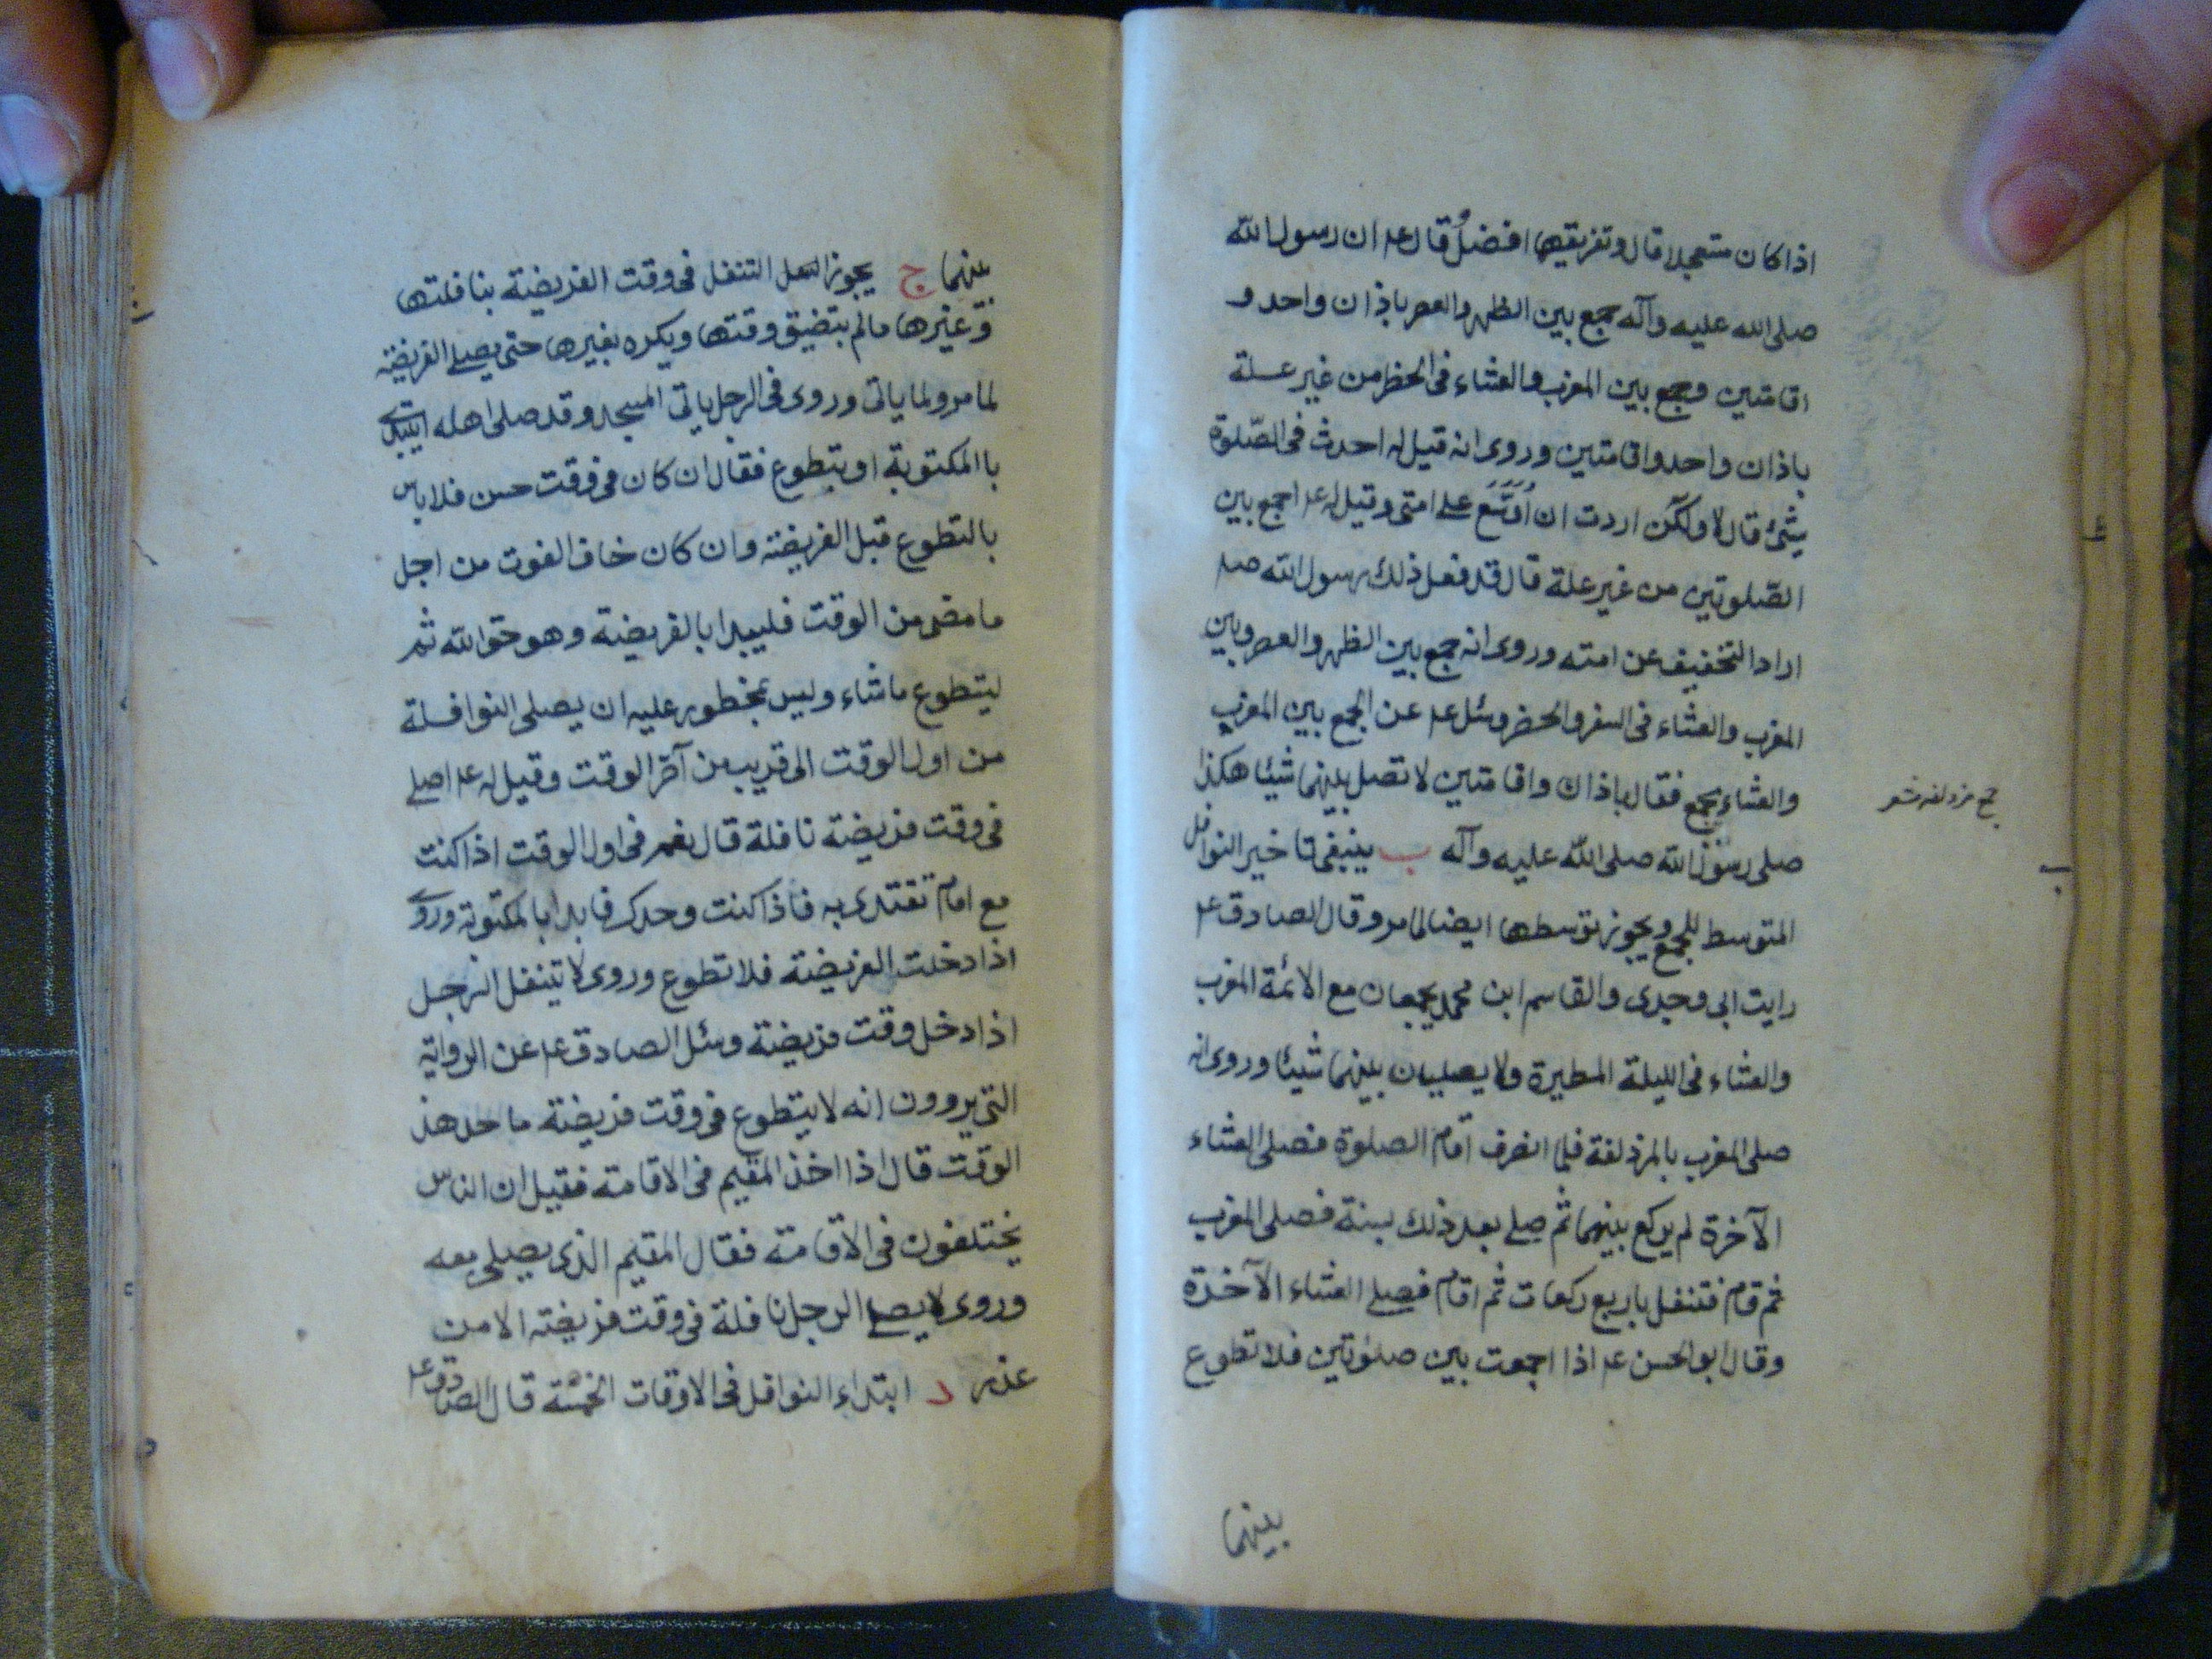 اذا كان متعجلا قال وتفريقها افضل وقال ع ان رسول الله
صلى الله عليه وآله جمع بين الظهر والعصر باذان واحد و
اقامتين وجمع بين المغرب والعشاء فى الحضر من غير علة
باذان واحد واقامتين وروى انه قيل له احدث فى الصّلوة
شئ قال لا ولكن اردت ان اُوَسِّعَ على امتى وقيل له ع اجمع بين
الصّلوتين من غير علة قال قد فعل ذلك رسول الله صلـ
اراد التخفيف عن امته وروى انه جمع بين الظهر والعصر وبين
المغرب والعشاء فى السفر والحضر وسئل ع عن الجمع بين المغرب
والعشاء بجمع فقال باذان واقامتين لا تصل بينهما شيئا هكذا
جمع مزدلفه مشعر
صلى رسول الله صلى الله عليه وآله ب ينبغى تاخير النوافل
المتوسط للجمع ويجوز توسطها ايضا لما مر وقال الصادق ع
رايت ابى وجدى والقاسم ابن محمد يجمعان مع الائمة المغرب
والعشاء فى الليلة المطيرة ولا يصليان بينهما شيئا وروى انه
صلى المغرب بالمزدلفة فلما انصرف اقام الصلوة فصلى العشاء
الآخرة لم يركع بينهما ثم صلى بعد ذلك بسنة فصلى المغرب
ثم قام فتنفل باربع ركعات ثم اقام فصلى العشاء الآخرة
وقال ابو الحسن ع اذا اجمعت بين صلوتين فلا تطوع
بينهما
بينهما ج يجوز التنفل فى وقت الفريضة بنافلتها
وغيرها مالم يتضيق وقتها ويكره بغيرها حتى يصلى الفريضة
لما مر ولما ياتى وروى فى الرجل ياتى المسجد وقد صلى اهله ايبتدى
باالمكتوبة او يتطوع فقال ان كان فى وقت حسن فلا باس
بالتطوع قبل الفريضة وان كان خاف الفوت من اجل
ما مضى من الوقت فليبدا بالفريضة وهو حق الله ثم
ليتطوع ما شاء وليس بمحظور عليه ان يصلى النوافلة
من اول الوقت الى قريب من آخر الوقت وقيل له ع اصلى
فى وقت فريضة نافلة قال نعم فى اول الوقت اذا كنت
مع امام تقتدى به فاذا كنت وحدك فابدا بالمكتوبة وروى
اذا دخلت الفريضة فلا تطوع وروى لا يتنفل الرجل
اذا دخل وقت فريضة وسئل الصادق ع عن الرواية
التى يروون انه لا يتطوع فى وقت فريضة ما حد هذ
الوقت قال اذا اخذ المقيم فى الاقامة فقيل ان الناس
يختلفون فى الاقامة فقال المقيم الذى يصلى معه
وروى لا يصلى الرجل نافلة فى وقت فريضة الا من
عذر د ابتداء النوافل فى الاوقات الخمسة قال الصادق ع